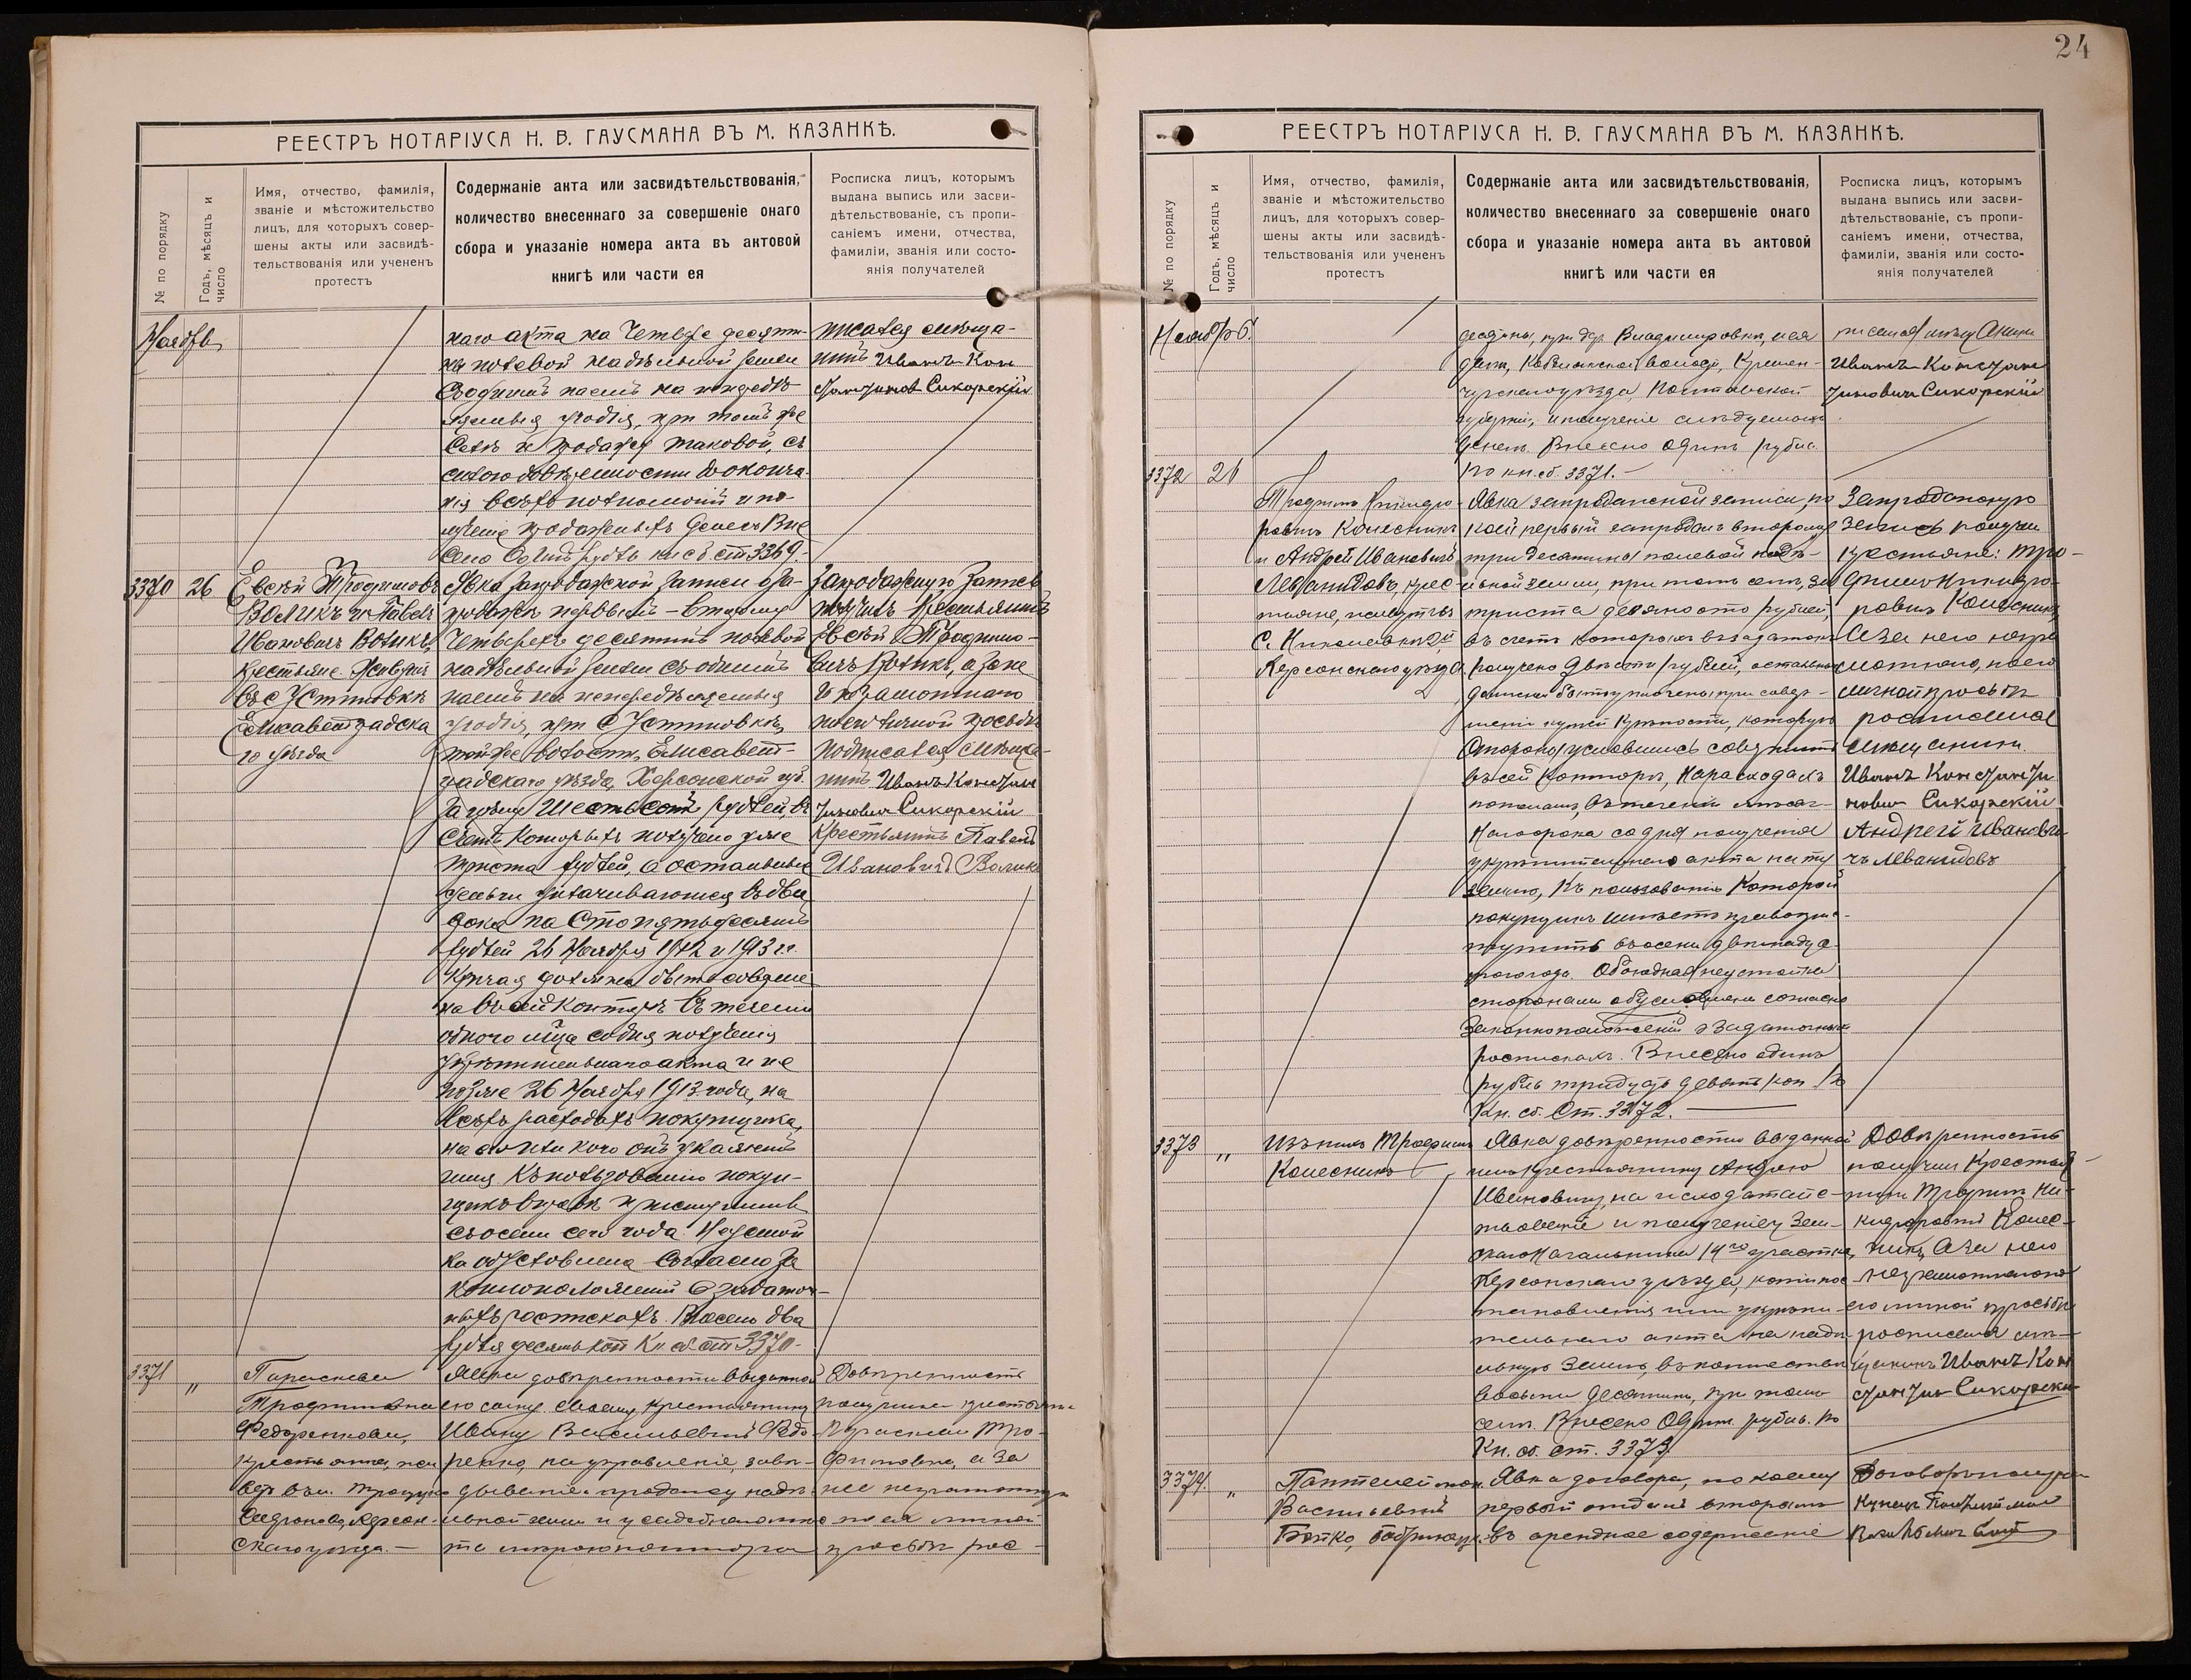 РЕЕСТРЪ НОТАРІУСА Н. В. ГАУСМАНА ВЪ М. КАЗАНКѢ.
№ по порядку
Годъ, мѣсяцъ и
число
Имя, отчество, фамилія,
званіе и мѣстожительство
лицъ, для которыхъ совер-
шены акты или засвидѣ-
тельствованія или учененъ
протестъ
Содержаніе акта или засвидѣтельствованія,
количество внесеннаго за совершеніе онаго
сбора и указаніе номера акта въ актовой
книгѣ или части ея
Росписка лицъ, которымъ
выдана выпись или засви-
дѣтельствованіе, съ пропи-
саніемъ имени, отчества,
фамиліи, званія или состо-
янія получателей
Ноября
наго акта на четыре десяти-
ны полевой надѣльной земли
угодія, при томъ же
селѣ и продажу таковой, съ
всѣхъ полномочій и по-
лученіе
кн сб ст 3369.
писался мѣща-
нинъ Иванъ Кон
стантинов Сикорскій
3370
26
Евсѣй Трофимовъ
Воликъ и Павелъ
Ивановичъ Воликъ,
крестьяне, живущіе
въ с Устиновкѣ
Елисаветградска
го уѣзда
Явка запродажной записи о за-
продажѣ первый - второму
четырехъ десятинъ полевой
надѣльной земли съ общимъ
паемъ на
угодія, при с Устиновкѣ,
той же волости, Елисавет-
градскаго уѣзда, Херсонской губ.
за цѣну шестьсотъ рублей, въ
счетъ которыхъ получено уже
триста рублей, а остальныя
деньги уплачиваются въ два
срока по сто пятьдесятъ
рублей 26 Ноября 1912 и 1913 гг.
Купчая должна быть соверше
на въ сей конторѣ въ теченіи
одного м-ца со дня полученія
укрѣпительнаго акта и не
позже 26 Ноября 1913 года, на
всѣхъ расходахъ покупщика,
къ пользованію покуп-
щикъ вправѣ приступить
съ осени сего года. Неустой
ка обусловлена согласно за
коноположеній о задаточ-
ныхъ роспискахъ. Внесено два
рубля десять коп Кн сб. ст 3370.
Запродажную запись
получилъ крестьянинъ
Евсѣй Трофимо-
вичъ Воликъ, а за не
го неграмотнаго
по его личной просьбѣ
подписался мѣща-
нинъ Иванъ Констан
тиновичъ Сикорскій
Крестьянинъ Павелъ
Ивановичъ Воликъ
3371
„
Параскева
Трофимовна
Федоренкова,
крестьянка,
скаго уѣзда. —
Явка довѣренности выданной
ею сыну своему, крестьянину
Ивану Васильевичу Федо-
ренко, на управленіе, завѣ-
дываніе и продажу надѣ-
льной земли и
Довѣренность
получила крестьянка
Параскева Тро-
фимовна, а за
нее неграмотную
по ея личной
просьбѣ рос-
24
РЕЕСТРЪ НОТАРІУСА Н. В. ГАУСМАНА ВЪ М. КАЗАНКѢ.
№ по порядку
Годъ, мѣсяцъ и
число
Имя, отчество, фамилія,
званіе и мѣстожительство
лицъ, для которыхъ совер-
шены акты или засвидѣ-
тельствованія или учененъ
протестъ
Содержаніе акта или засвидѣтельствованія,
количество внесеннаго за совершеніе онаго
сбора и указаніе номера акта въ актовой
книгѣ или части ея
Росписка лицъ, которымъ
выдана выпись или засви-
дѣтельствованіе, съ пропи-
саніемъ имени, отчества,
фамиліи, званія или состо-
янія получателей
Ноябрь.
десятины, при дер. Владимировкѣ,
волости, Кремен-
чугскаго уѣзда, Полтавской
губерніи, и полученіе слѣдуемыхъ
денегъ. Внесено одинъ рубль.
по кн. сб. 3371. —
писался мѣщанинъ
Иванъ Констан
тиновичъ Сикорскій
3372
26
Трофимъ Никифо-
ровичъ Колесникъ
и Андрей Ивановичъ
Левандовъ, крес-
тьяне, живутъ въ
с. Николаевкѣ 2й
Херсонскаго уѣзда
Явка запродажной записи, по
коей первый запродалъ второму
три десятины полевой надѣ-
льной земли, при томъ селѣ, за
триста девяносто рублей,
въ счетъ которыхъ въ задатокъ
получено двѣсти рублей, остальные
должны быть уплочены при совер-
шеніи купчей крѣпости, которую
стороны условились совершить
въ сей конторѣ, на расходахъ
пополамъ, въ теченіи мѣсяч-
наго срока со дня полученія
укрѣпительнаго акта на ту
землю, къ пользованію которой
покупщикъ имѣетъ право прис-
тупить съ осени двѣнадца-
таго года. Обоюдная неустойка
сторонами обусловлена согласно
законоположеній о задаточныхъ
роспискахъ. Внесено одинъ
рубль тридцать девять коп. по
Кн. сб. ст. 3372. —
Запродажную
запись получили
крестьяне: Тро-
фимъ Никифо-
ровичъ Колесникъ,
а за него негра-
мотнаго, по его
личной просьбѣ
росписался
мѣщанинъ
Иванъ Константи
новичъ Сикорскій
Андрей Иванови
чъ Левандовъ
3373
„
Изъ нихъ Трофимъ
Колесникъ —
Явка довѣренности выданной
имъ крестьянину Андрею
Ивановичу, на исходатайс-
твованіе и полученіе у Зем-
скаго Начальника 14го участка,
Херсонскаго уѣзда, копіи пос-
тановленія или укрѣпи-
тельнаго акта на надѣ-
льную землю, въ количествѣ
восьми десятинъ, при томъ
селѣ. Внесено одинъ рубль. по
Кн. сб. ст. 3373.
Довѣренность
получилъ крестья-
нинъ Трофимъ Ни-
кифоровичъ Колес-
никъ, а за него
неграмотнаго по
его личной просьбѣ
росписался мѣ-
щанинъ Иванъ Кон
стантин Сикорски
3374.
„
Пантелеймонъ
Васильевичъ
Явка договора, по коему
первый отдалъ вторымъ
въ арендное содержаніе
Договоръ получилъ